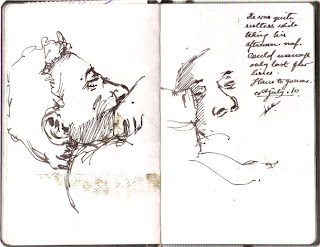 He was quite
restless while
taking his
afternoon nap.
Could manage
only last few
lines.
to
July. 10